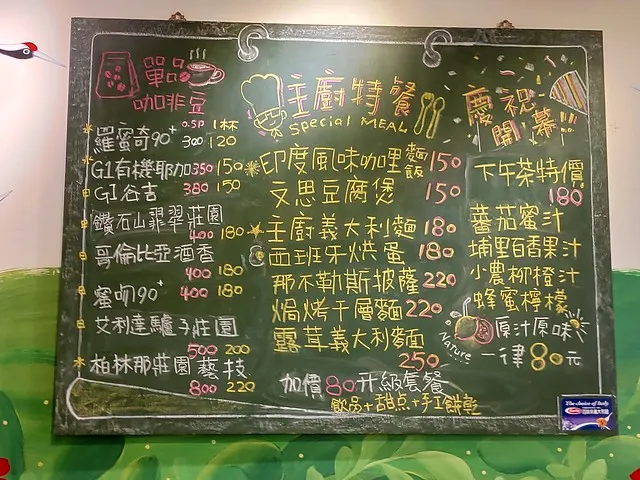 單品
咖啡豆
0.5P 1杯
羅蜜奇90⁺ 300 120
G1有機耶加 350 150
G1谷吉 380 150
鑽石山翡翠莊園
400 180
哥倫比亞酒香
400 180
蜜吻90⁺ 400 180
艾利達驢子莊園
500 200
柏林那莊園藝技
800 220
主廚特餐
Special MEAL
印度風味咖哩麵飯 150
文思豆腐煲 150
主廚義大利麵 180
西班牙烘蛋 180
那不勒斯披薩 220
焗烤千層麵 220
露茸義大利麵
250
加價80升級套餐
飲品+甜点+手工餅乾
慶祝
開幕!!
下午茶特價
180
蕃茄蜜汁
埔里百香果汁
小農柳橙汁
蜂蜜檸檬
Nature
原汁原味
一律80元
The choice of Italy